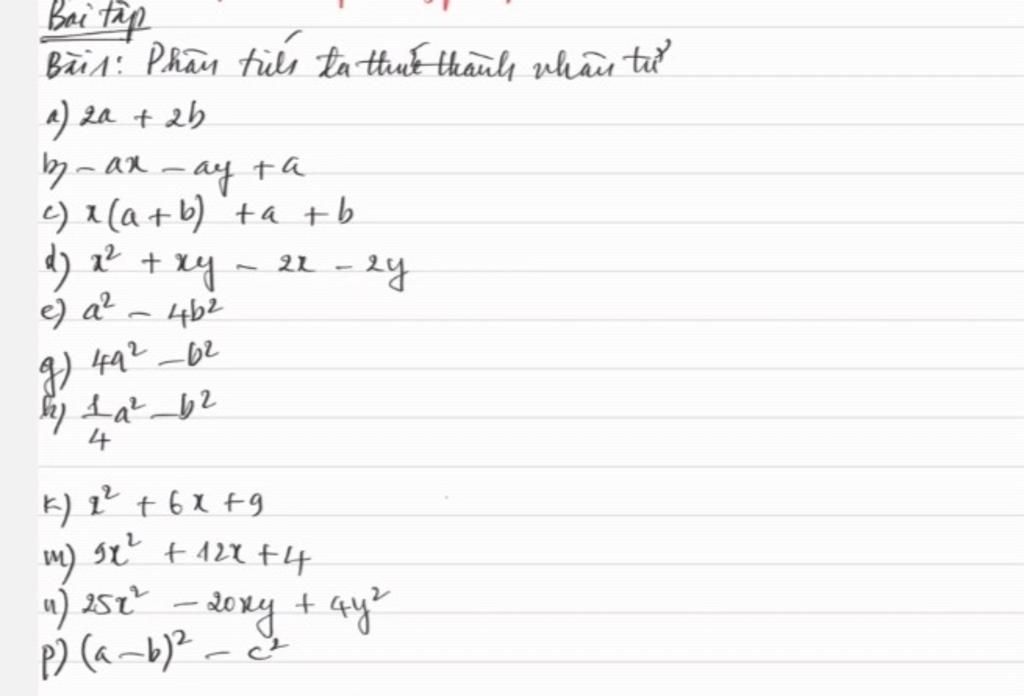 Bài tập
Bài 1: Phân tích đa thức thành nhân tử
a) 2a + 2b
b) - ax - ay + a
c) x(a + b) + a + b
d) x² + xy - 2x - 2y
e) a² - 4b²
g) 4a² - b²
h) 1/4 a² - b²
k) x² + 6x + 9
m) 9x² + 12x + 4
n) 25x² - 20xy + 4y²
p) (a - b)² - c²